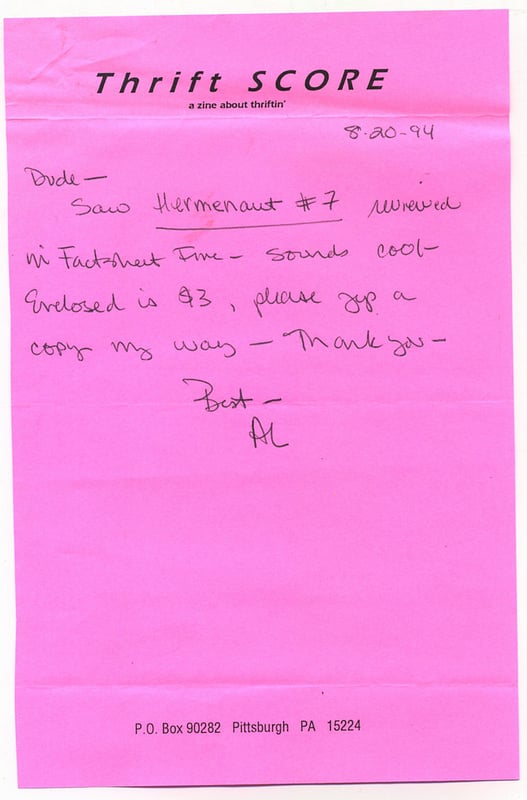 Thrift SCORE
a zine about thriftin'
8-20-94
Dude —
Saw Hermenaut #7 reviewed
in Factsheet Five — sounds cool —
Enclosed is $3, please zip a
copy my way — Thank you —
Best —
AL
P.O. Box 90282 Pittsburgh PA 15224